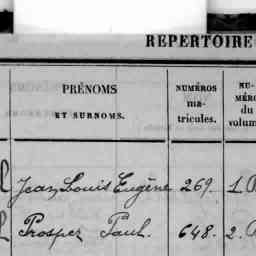 REPERTOIRE
PRÉNOMS
ET SURNOMS.
NUMÉROS
ma-
tricules.
NU-
MÉRO
du
volum
Jean Louis Eugène 269. 1.
Prosper Paul. 648. 2.